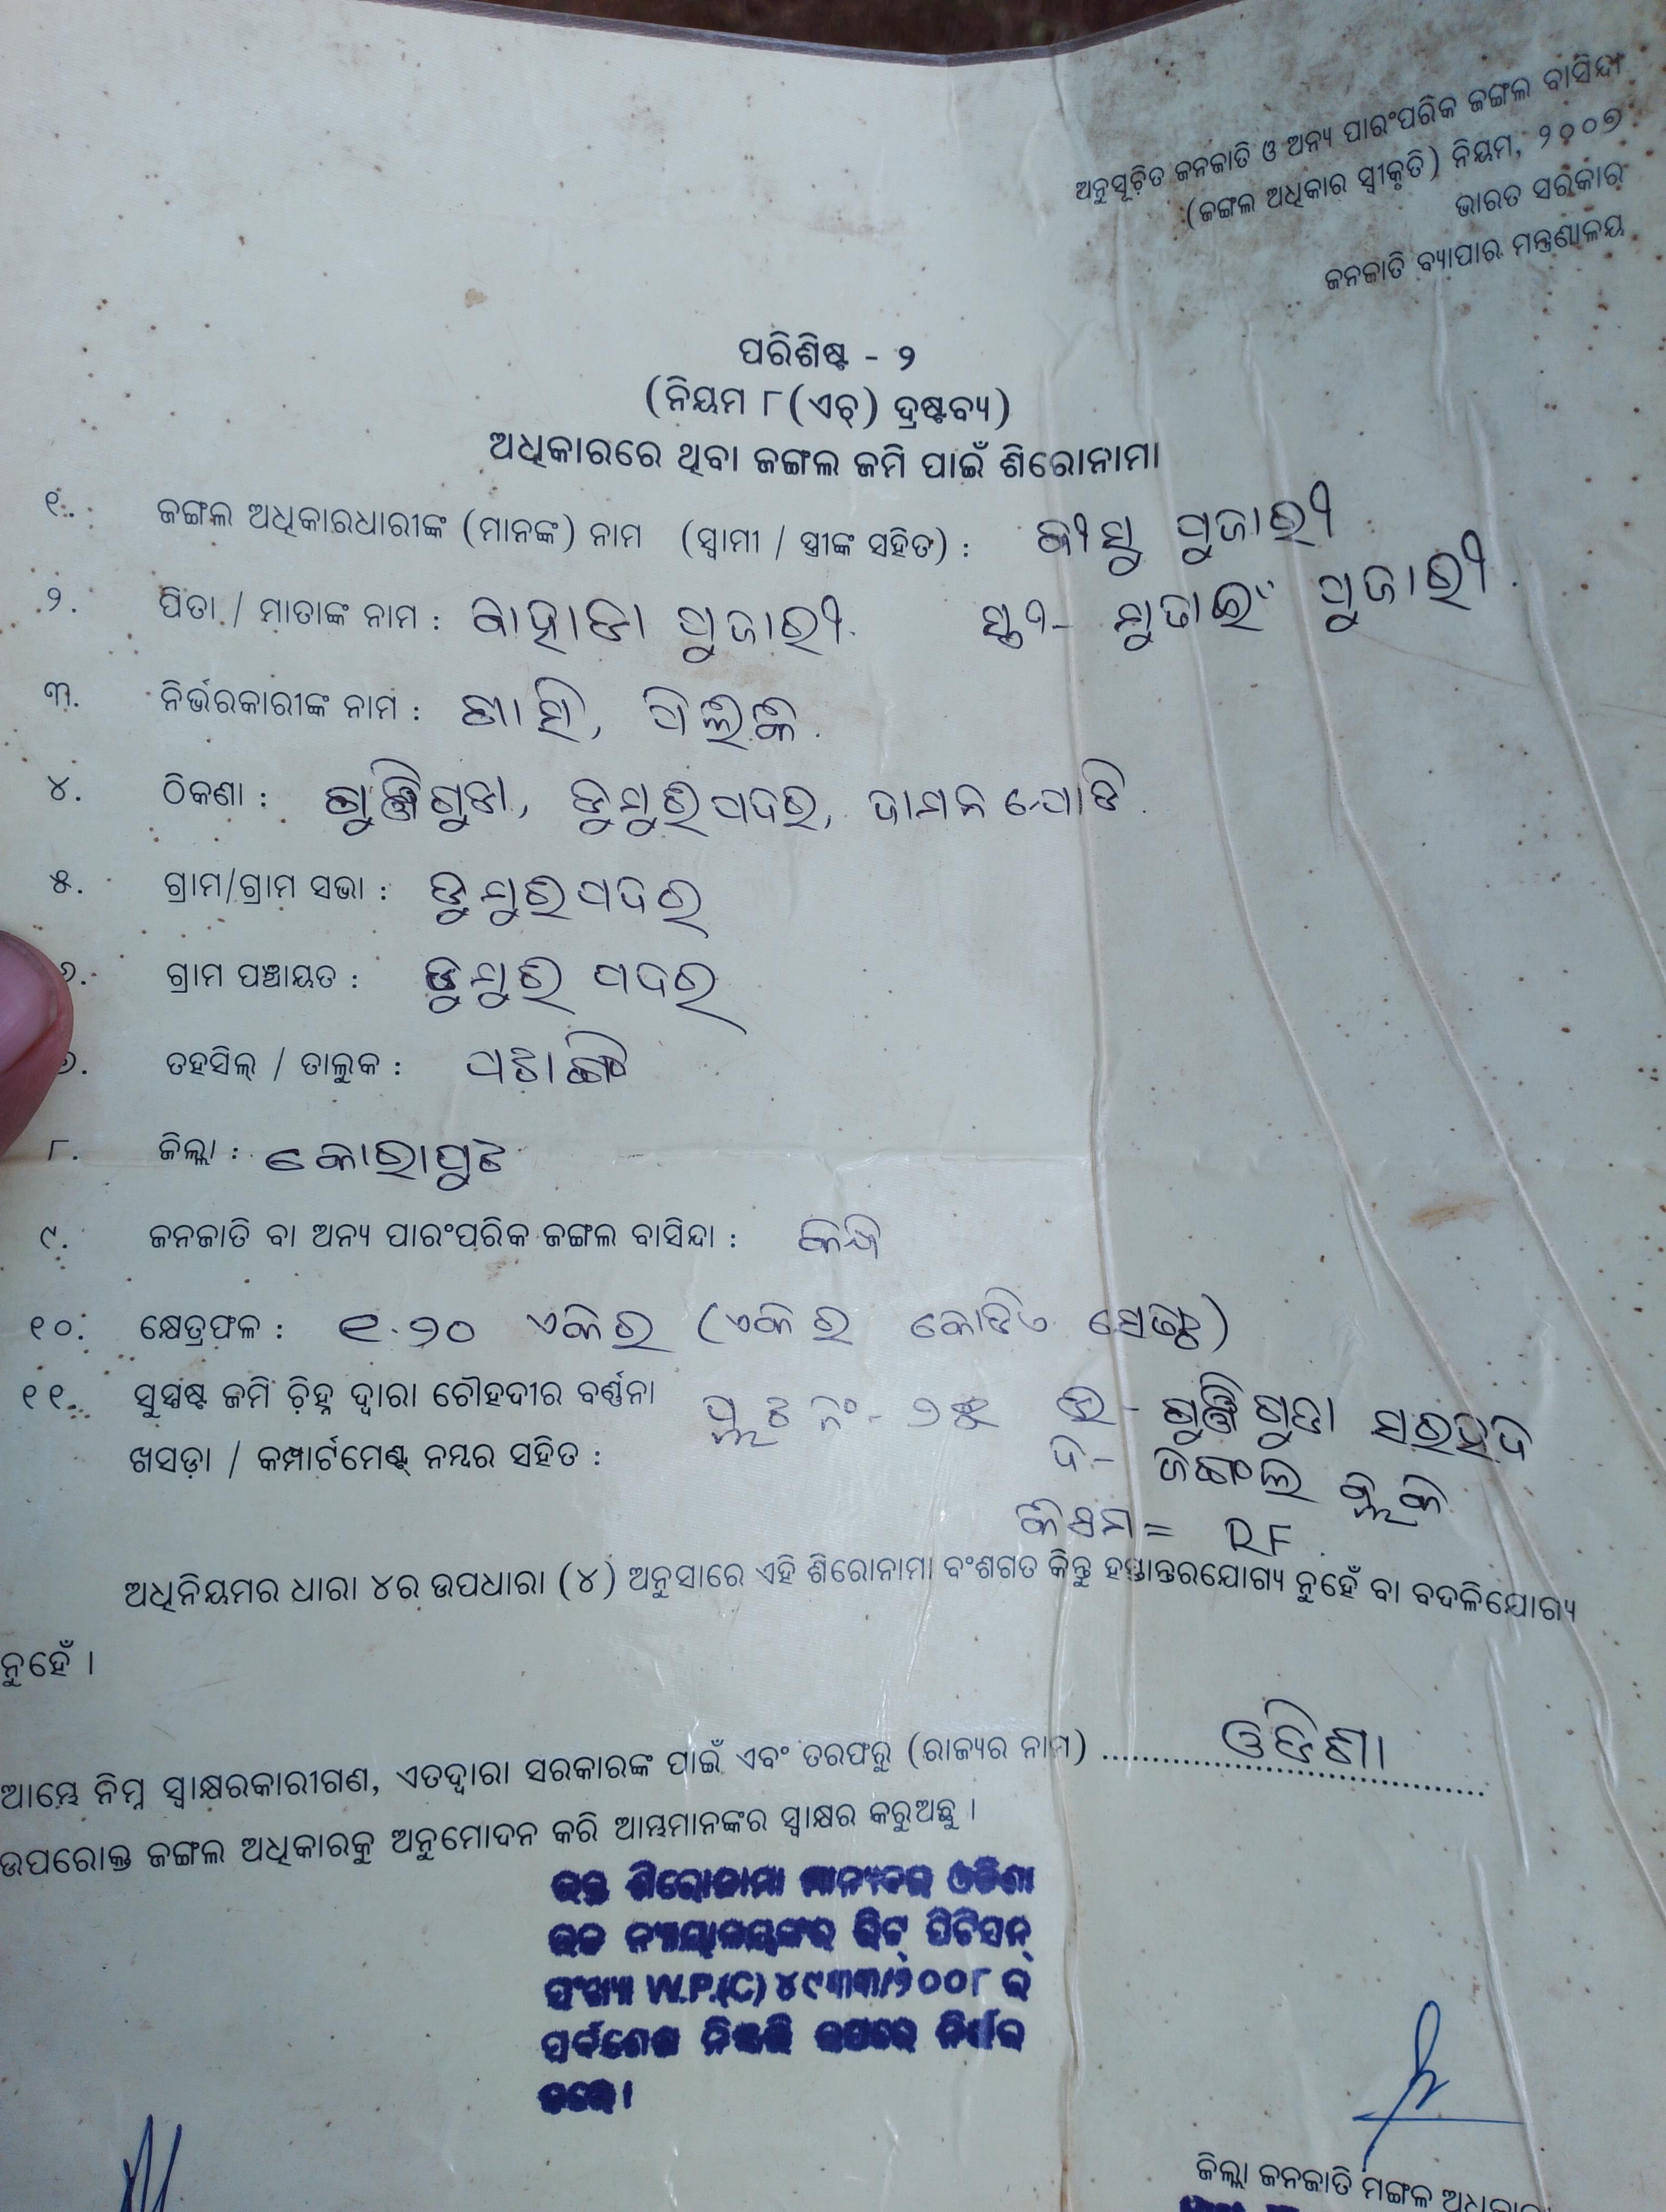 ଅନୁସୂଚିତ ଜନଜାତି ଓ ଅନ୍ୟ ପାରଂପରିକ ଜଙ୍ଗଲ ବାସିନ୍ଦା
(ଜଙ୍ଗଲ ଅଧିକାର ସ୍ୱୀକୃତି) ନିୟମ, ୨୦୦୭
ଭାରତ ସରକାର
ଜନଜାତି ବ୍ୟାପାର ମନ୍ତ୍ରଣାଳୟ
ପରିଶିଷ୍ଟ - ୨
(ନିୟମ ୮(ଏଚ୍) ଦ୍ରଷ୍ଟବ୍ୟ)
ଅଧିକାରରେ ଥିବା ଜଙ୍ଗଲ ଜମି ପାଇଁ ଶିରୋନାମା
୧. ଜଙ୍ଗଲ ଅଧିକାରଧାରୀଙ୍କ (ମାନଙ୍କ) ନାମ (ସ୍ୱାମୀ / ସ୍ତ୍ରୀଙ୍କ ସହିତ) : ପୁଜାରୀ
୨. ପିତା / ମାତାଙ୍କ ନାମ : ପୁଜାରୀ ସ୍ତ୍ରୀ- ପୁଜାରୀ
୩. ନିର୍ଭରକାରୀଙ୍କ ନାମ :
୪. ଠିକଣା : ଗୁଞ୍ଜିଗୁଡା, ଡୁମୁରପଦର, ଦାମନଯୋଡି
୫. ଗ୍ରାମ/ଗ୍ରାମ ସଭା : ଡୁମୁରପଦର
୬. ଗ୍ରାମ ପଞ୍ଚାୟତ : ଡୁମୁରପଦର
୭. ତହସିଲ୍ / ତାଲୁକ : ପଟାଙ୍ଗି
୮. ଜିଲ୍ଲା : କୋରାପୁଟ
୯. ଜନଜାତି ବା ଅନ୍ୟ ପାରଂପରିକ ଜଙ୍ଗଲ ବାସିନ୍ଦା :
୧୦. କ୍ଷେତ୍ରଫଳ : ୧.୨୦ ଏକର (ଏକର କୋଡିଏ ସେଣ୍ଟ)
୧୧. ସୁସ୍ପଷ୍ଟ ଜମି ଚିହ୍ନ ଦ୍ୱାରା ଚୌହଦୀର ବର୍ଣ୍ଣନା ପ୍ଲଟ ନଂ- ୨୫ ଉ- ଗୁଞ୍ଜିଗୁଡା ସରହଦ
ଖସଡ଼ା / କମ୍ପାର୍ଟମେଣ୍ଟ୍ ନମ୍ବର ସହିତ : ଦ- ଜଙ୍ଗଲ
କିସମ= RF
ଅଧିନିୟମର ଧାରା ୪ର ଉପଧାରା (୪) ଅନୁସାରେ ଏହି ଶିରୋନାମା ବଂଶଗତ କିନ୍ତୁ ହସ୍ତାନ୍ତରଯୋଗ୍ୟ ନୁହେଁ ବା ବଦଳିଯୋଗ୍ୟ
ନୁହେଁ ।
ଆମ୍ଭେ ନିମ୍ନ ସ୍ୱାକ୍ଷରକାରୀଗଣ, ଏତଦ୍ୱାରା ସରକାରଙ୍କ ପାଇଁ ଏବଂ ତରଫରୁ (ରାଜ୍ୟର ନାମ) ........ ଓଡିଶା
ଉପରୋକ୍ତ ଜଙ୍ଗଲ ଅଧିକାରକୁ ଅନୁମୋଦନ କରି ଆମ୍ଭମାନଙ୍କର ସ୍ୱାକ୍ଷର କରୁଅଛୁ ।
ଉକ୍ତ ଶିରୋନାମା ମାନ୍ୟବର ଓଡିଶା
ଉଚ୍ଚ ନ୍ୟାୟାଳୟଙ୍କର ରିଟ୍ ପିଟିସନ୍
ସଂଖ୍ୟା W.P.(C) ୪୯୩୩/୨୦୦୮ ର
ସର୍ବଶେଷ ନିଷ୍ପତ୍ତି ଉପରେ ନିର୍ଭର
କରେ।
ଜିଲ୍ଲା ଜନଜାତି ମଙ୍ଗଳ